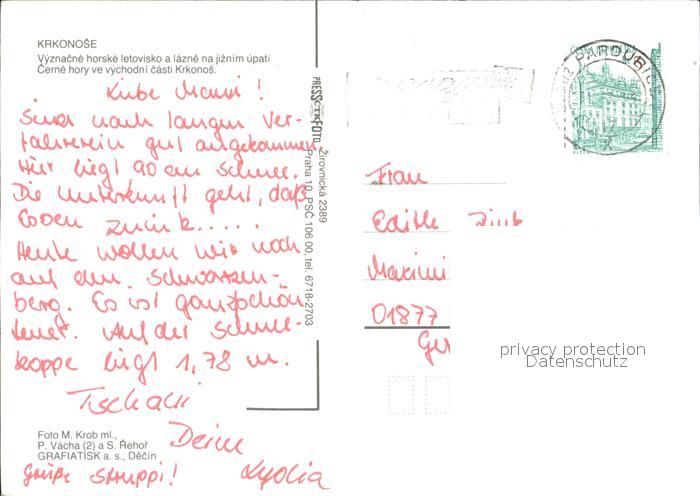 KRKONOŠE
Význačné horské letovisko a lázně na jižním úpatí
Černé hory ve východní části Krkonoš.
Liebe Mami!
Sind nach langer Ver-
gut angekommen.
Hier liegt 90 cm Schnee.
Die Unterkunft geht, das
Essen zurück.....
Heute wollen wir noch
auf den Schwarzen-
berg. Es ist ganz schön
teuer. Auf der Schnee-
koppe liegt 1,78 m.
Tschau
Deine
Lydia
Grüße Struppi!
Foto M. Krob ml.,
P. Vácha (2) a S. Řehoř
GRAFIATISK a. s., Děčín
PRESSFOTO
Žirovnická 2389
Praha 10, PSČ 106 00, tel. 6718-2703
PARDUBIC
Frau
Edith
01877
Ger
privacy protection
Datenschutz